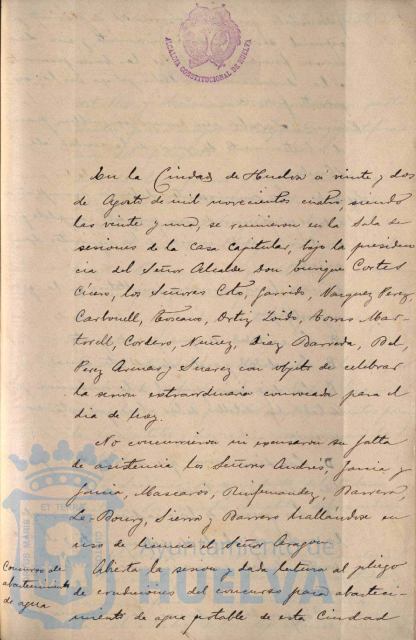 ALCALDIA CONSTITUCIONAL DE HUELVA
En la Ciudad de Huelva á veinte y dos
de Agosto de mil novecientos cuatro, siendo
las veinte y una, se reunieron en la Sala de
sesiones de la casa Capitular, bajo la presiden
cia del Señor Alcalde Don Enrique Cortes
Cicero, los Señores Coto, Garrido, Vazquez Perez,
Carbonell, Toscano, Ortiz, Loido, Torres Mar-
torell, Cordero, Nuñez, Diaz Barreda, Bel,
Perez Arenas y Suarez con objeto de celebrar
la sesion extraordinaria convocada para el
dia de hoy.
No concurrieron ni excusaron su falta
de asistencia los Señores Andrés, Garcia y
Garcia, Mascarós, Ruifernandez, Barrera,
Le-Bourg, Sierra y Barrero hallandose en
uso de licencia el Señor Aragon.
Concurso de
abastecimiento
de agua
Abierta la sesion y dada lectura al pliego
de condiciones del concurso para abasteci-
miento de agua potable de esta Ciudad
Ayuntamiento de
HUELVA